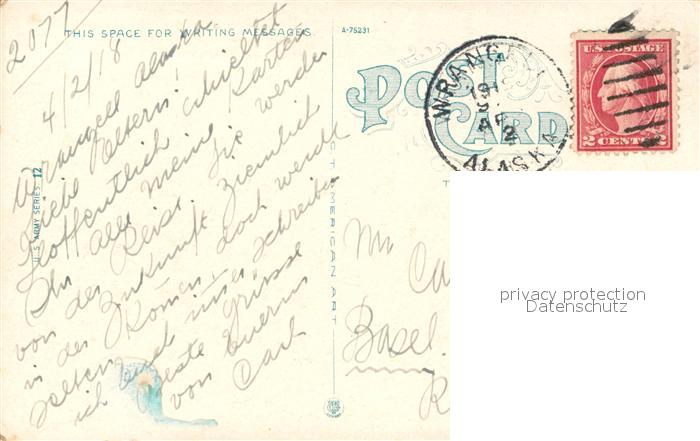 2077
THIS SPACE FOR WRITING MESSAGES
A-75231
4/2/18
Wrangell Alaska
Liebe Eltern!
Hoffentlich erhieltet
Ihr alle meine Karten
von der Reise. Sie werden
in der Zukunft ziemlich
selten kommen, doch werde
ich Euch immer schreiben
Beste Grüsse
von Euerm
Carl
U. S. ARMY SERIES 12
AMERICAN ART
POST CARD
WRANGELL
APR
2
ALASKA
U.S. POSTAGE
2 CENTS 2
Mr Ca
Basel.
privacy protection
Datenschutz